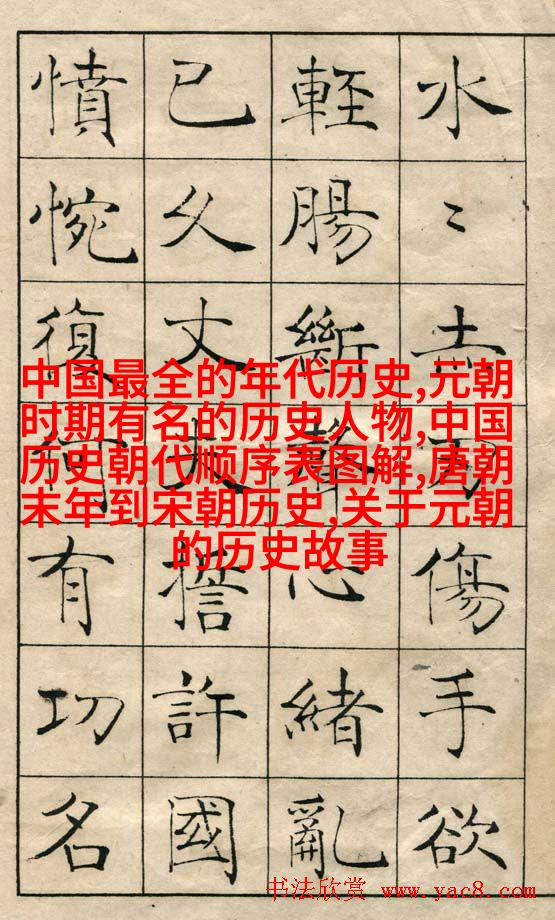 水〻傷手欲
輕腸斷聲心緒亂
已久丈夫誓許國
憤惋復何有功名
中国最全的年代历史,元朝
时期有名的历史人物,中国
历史朝代顺序表图解,唐朝
末年到宋朝历史,关于元朝
的历史故事
书法欣赏 www.yac8.com